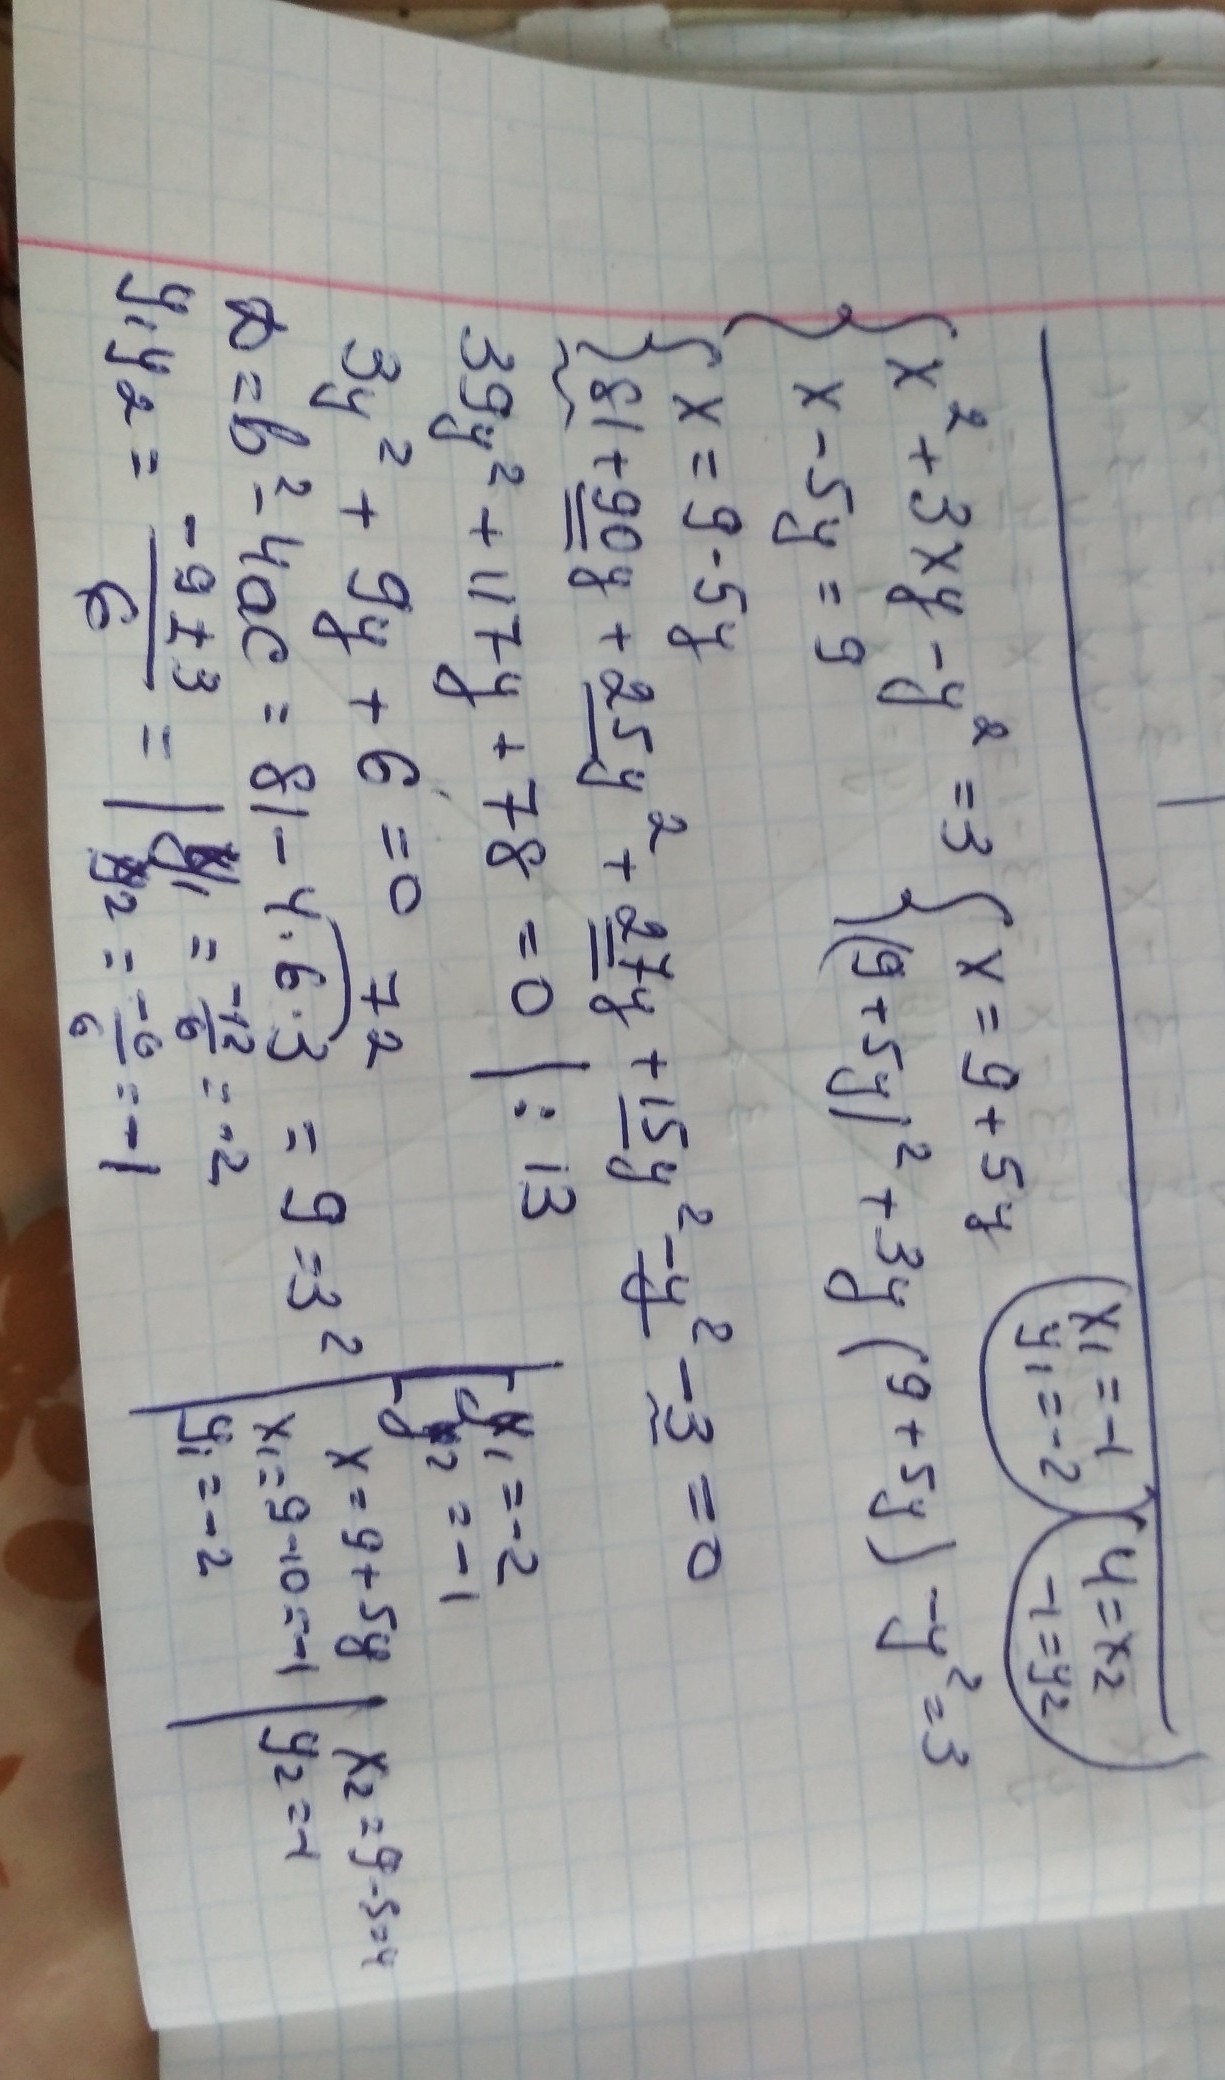 { x² + 3xy - y² = 3
x - 5y = 9
{ x = 9 + 5y
(9 + 5y)² + 3y (9 + 5y) - y² = 3
x₁ = -1
y₁ = -2
4 = x₂
-1 = y₂
{ x = 9 - 5y
81 + 90y + 25y² + 27y + 15y² - y² - 3 = 0
39y² + 117y + 78 = 0 | : 13
3y² + 9y + 6 = 0
72
D = b² - 4ac = 81 - 4·6·3 = 9 = 3²
y₁y₂ = (-9 ± 3)/6 = | y₁ = -12/6 = -2
y₂ = -6/6 = -1
y₁ = -2
y₂ = -1
x = 9 + 5y
x₁ = 9 - 10 = -1
y₁ = -2
x₂ = 9 - 5 = 4
y₂ = -1